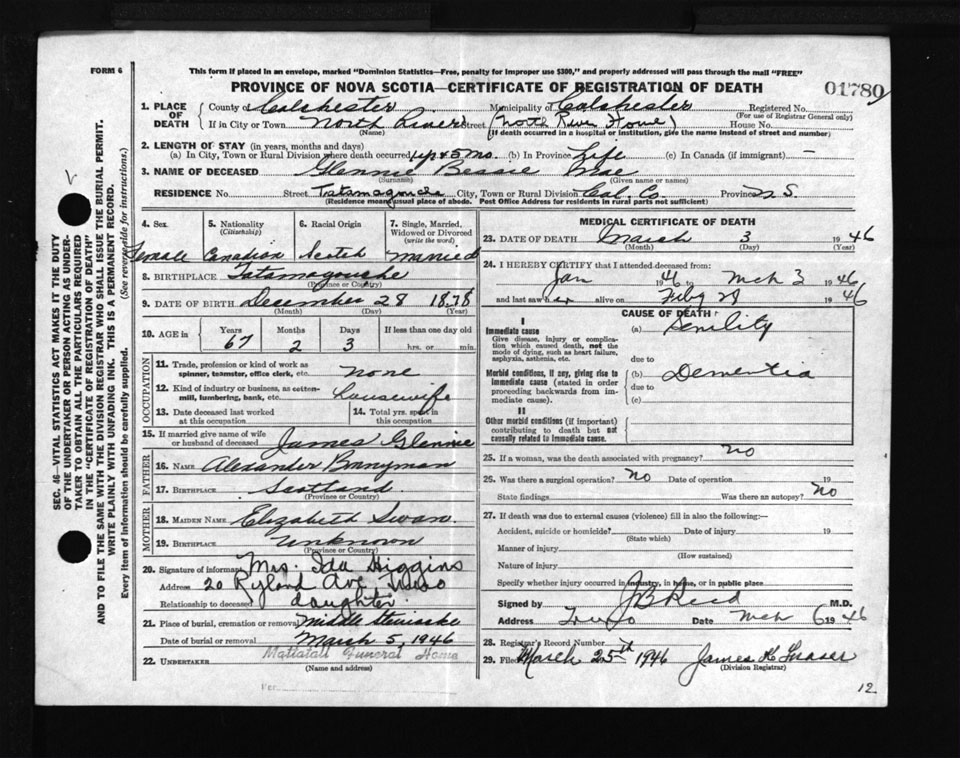 FORM 6
This form if placed in an envelope, marked "Dominion Statistics—Free, penalty for improper use $300," and properly addressed will pass through the mail "FREE"
PROVINCE OF NOVA SCOTIA—CERTIFICATE OF REGISTRATION OF DEATH
01780
1. PLACE OF DEATH
County of Colchester Municipality of Colchester Registered No.
(For use of Registrar General only)
If in City or Town North River Street (North River Home) House No.
(Name) (If death occurred in a hospital or institution, give the name instead of street and number)
2. LENGTH OF STAY (in years, months and days)
(a) In City, Town or Rural Division where death occurred 5 mo. (b) In Province Life (c) In Canada (if immigrant) —
3. NAME OF DECEASED Glennie Bessie Mae
(Surname) (Given name or names)
RESIDENCE No. Street Tatamagouche City, Town or Rural Division Col. Co. Province N.S.
(Residence means usual place of abode. Post Office Address for residents in rural parts not sufficient)
4. Sex
Female
5. Nationality
(Citizenship)
Canadian
6. Racial Origin
Scotch
7. Single, Married, Widowed or Divorced
(write the word)
Married
8. BIRTHPLACE Tatamagouche
(Province or Country)
9. DATE OF BIRTH December 28 1878
(Month) (Day) (Year)
10. AGE in Years Months Days If less than one day old
67 2 3 hrs. or min.
OCCUPATION
11. Trade, profession or kind of work as spinner, teamster, office clerk, etc. none
12. Kind of industry or business, as cotton-mill, lumbering, bank, etc. housewife
13. Date deceased last worked at this occupation
14. Total yrs. spent in this occupation
15. If married give name of wife or husband of deceased James Glennie
FATHER
16. NAME Alexander Bonnyman
17. BIRTHPLACE Scotland
(Province or Country)
MOTHER
18. MAIDEN NAME Elizabeth Swan.
19. BIRTHPLACE Unknown
(Province or Country)
20. Signature of informant Mrs. Ida Higgins
Address 20 Ryland Ave, Truro
Relationship to deceased daughter
21. Place of burial, cremation or removal Middle Stewiacke
Date of burial or removal March 5, 1946
22. UNDERTAKER Mattatall Funeral Home
(Name and address)
Per
MEDICAL CERTIFICATE OF DEATH
23. DATE OF DEATH March 3 1946
(Month) (Day) (Year)
24. I HEREBY CERTIFY that I attended deceased from:
Jan 1946 to Mch 3 1946
and last saw her alive on Feby 28 1946
CAUSE OF DEATH
I
Immediate cause
Give disease, injury or complication which caused death, not the mode of dying, such as heart failure, asphyxia, asthenia, etc.
(a) Senility
due to
Morbid conditions, if any, giving rise to immediate cause (stated in order proceeding backwards from immediate cause).
(b) Dementia
due to
(c)
II
Other morbid conditions (if important) contributing to death but not causally related to immediate cause.
25. If a woman, was the death associated with pregnancy? no
26. Was there a surgical operation? no Date of operation 19
State findings Was there an autopsy? no
27. If death was due to external causes (violence) fill in also the following:—
Accident, suicide or homicide? Date of injury 19
(State which)
Manner of injury
(How sustained)
Nature of injury
Specify whether injury occurred in industry, in home, or in public place
Signed by J B Reid M.D.
Address Truro Date Mch 6 1946
28. Registrar's Record Number
29. Filed March 25th 1946 James K Fraser
(Division Registrar)
12
SEC. 46—VITAL STATISTICS ACT MAKES IT THE DUTY
OF THE UNDERTAKER OR PERSON ACTING AS UNDER-
TAKER TO OBTAIN ALL THE PARTICULARS REQUIRED
IN THE "CERTIFICATE OF REGISTRATION OF DEATH"
AND TO FILE THE SAME WITH THE DIVISION REGISTRAR WHO SHALL ISSUE THE BURIAL PERMIT.
WRITE PLAINLY WITH UNFADING INK. THIS IS A PERMANENT RECORD.
Every item of information should be carefully supplied. (See reverse side for instructions.)